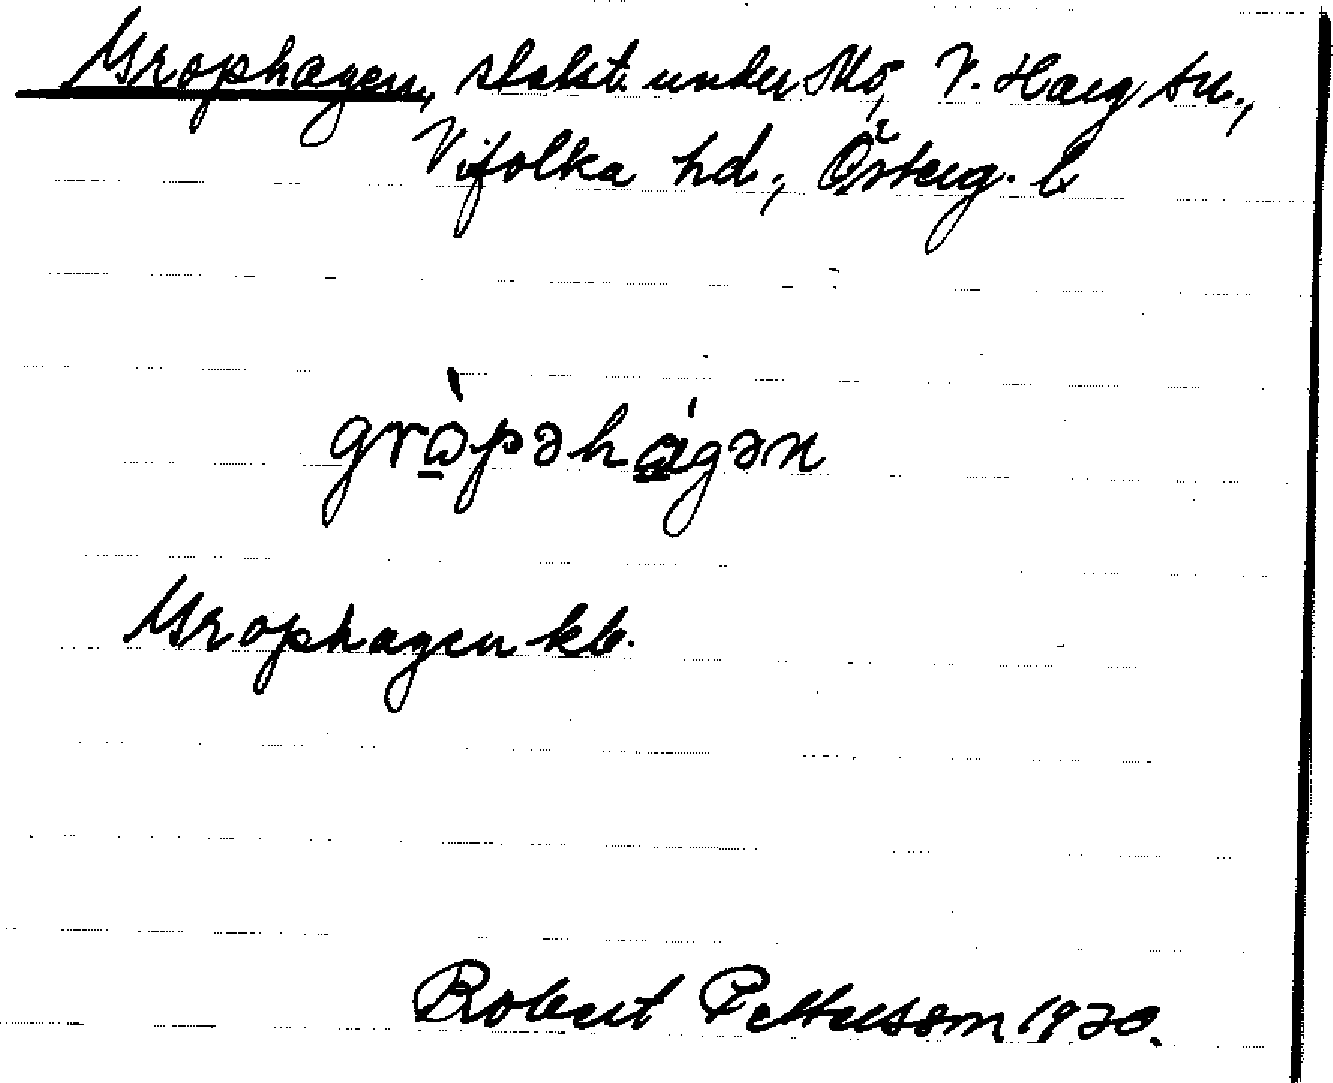 Grophagen, slåkt. under Mo, V. Harg sn.,
Vifolka hd., Österg. l
gròpəhágən
Grophagen kb.
Robert Pettersson 1920.